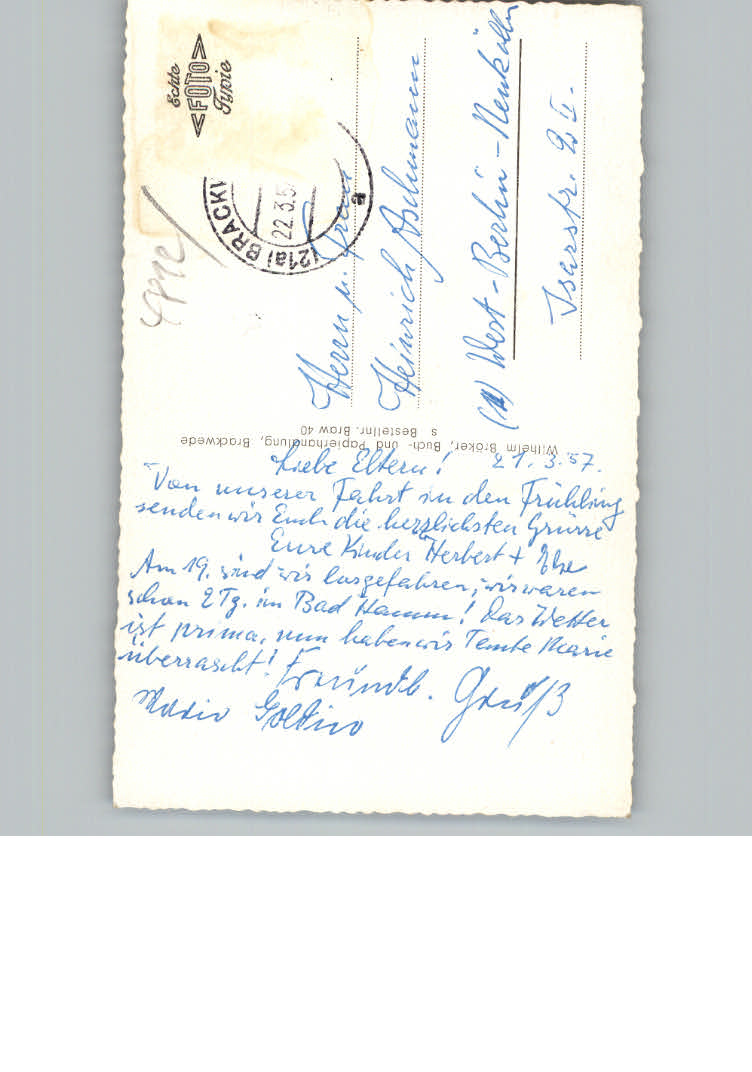 Echte
<FOTO>
Typie
(21a) BRACKW
22.3.5
a
Herrn u. Frau
Heinrich Aschmann
(1) West-Berlin-Neukölln
Isarstr.
Wilhelm Bröker, Buch- und Papierhandlung, Brackwede
s Bestellnr. Braw 40
Liebe Eltern! 21.3.57.
Von unserer Fahrt in den Frühling
senden wir Euch die herzlichsten Grüsse
Eure Kinder Herbert +
Am 19. sind wir losgefahren, wir waren
schon 2 Tg. in Bad Hamm! Das Wetter
ist prima, nun haben wir Tante Marie
überrascht! Freundl. Gruß